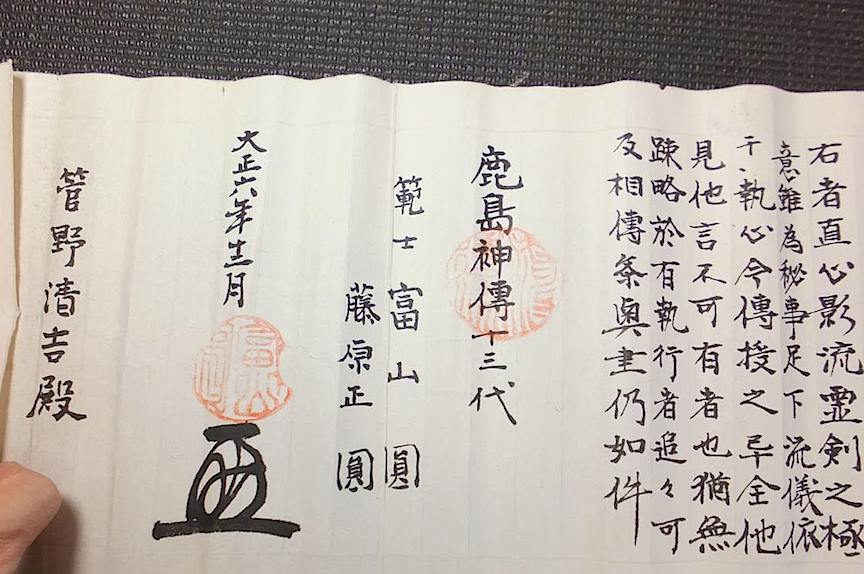 右者直心影流霊剣之極
意雖為秘事足下流儀依
干執心今傳授之畢全他
見他言不可有者也猶無
踈略於有執行者追々可
及相傳条奥書仍如件
鹿島神傳十三代
範士富山圓
藤原正圓
大正六年十二月
管野清吉殿